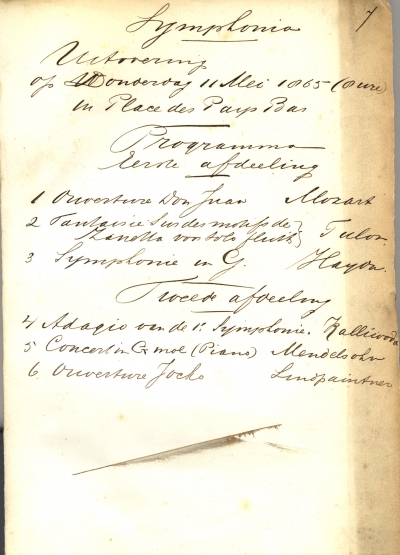 7
Symphonia
Uitvoering
op Donderdag 11 Mei 1865 (8 ure)
in Place des Pays Bas
Programma
Eerste afdeeling
1 Ouverture Don Juan Mozart
2 Fantaisie Sur des motifs de
Zanetta voor Solo fluit } Tulou
3 Symphonie in G. Haydn.
Tweede afdeeling
4 Adagio van de 1e Symphonie. Kalliwoda
5 Concert in G mol (Piano) Mendelsohn
6 Ouverture Jocko Lindpaintner